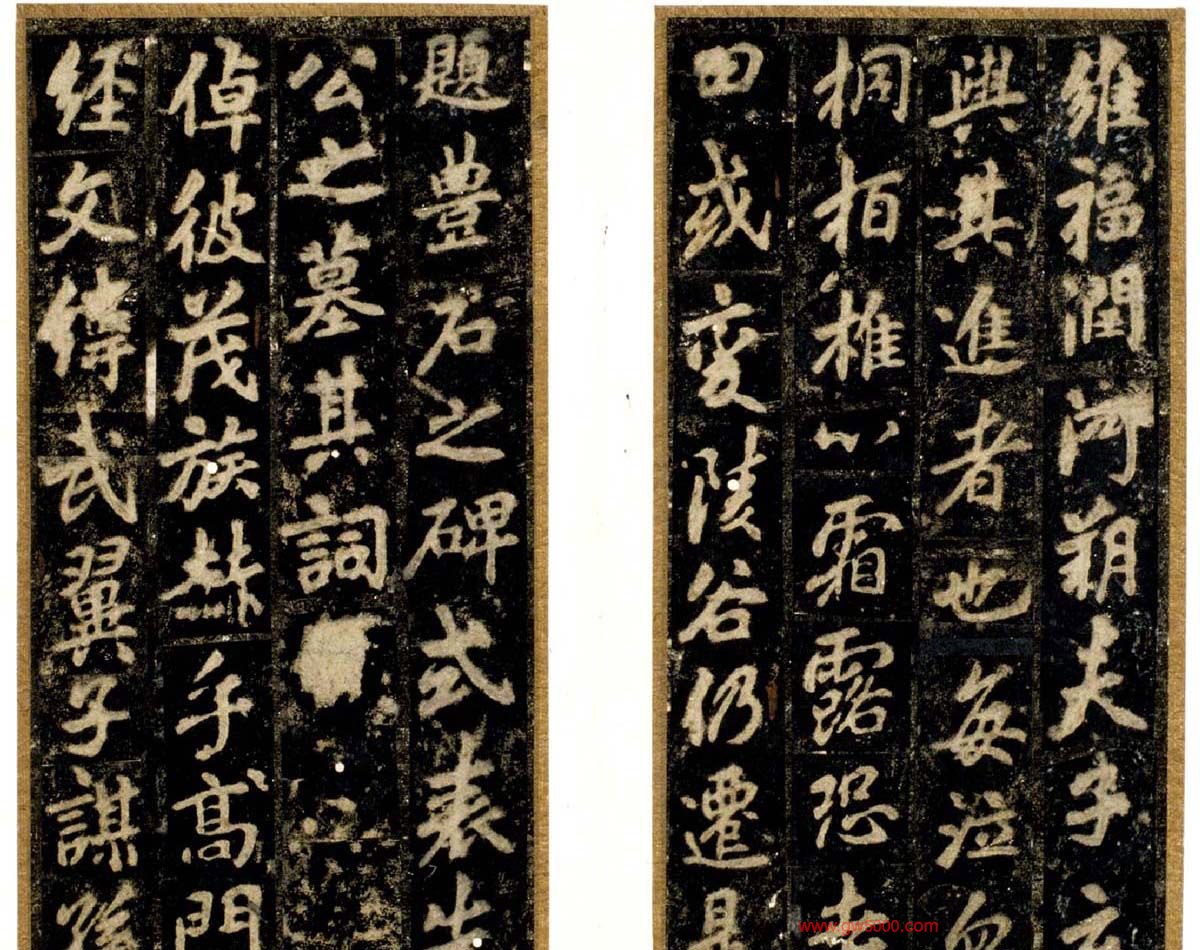 維福潤河朔夫子
與其進者也每泣血
桐栢摧以霜露恐
田或變陵谷仍遷是
題豊石之碑式表先
公之墓其詞
倬彼茂族赫乎高門
經文緯武翼子謀孫
www.gw5000.com